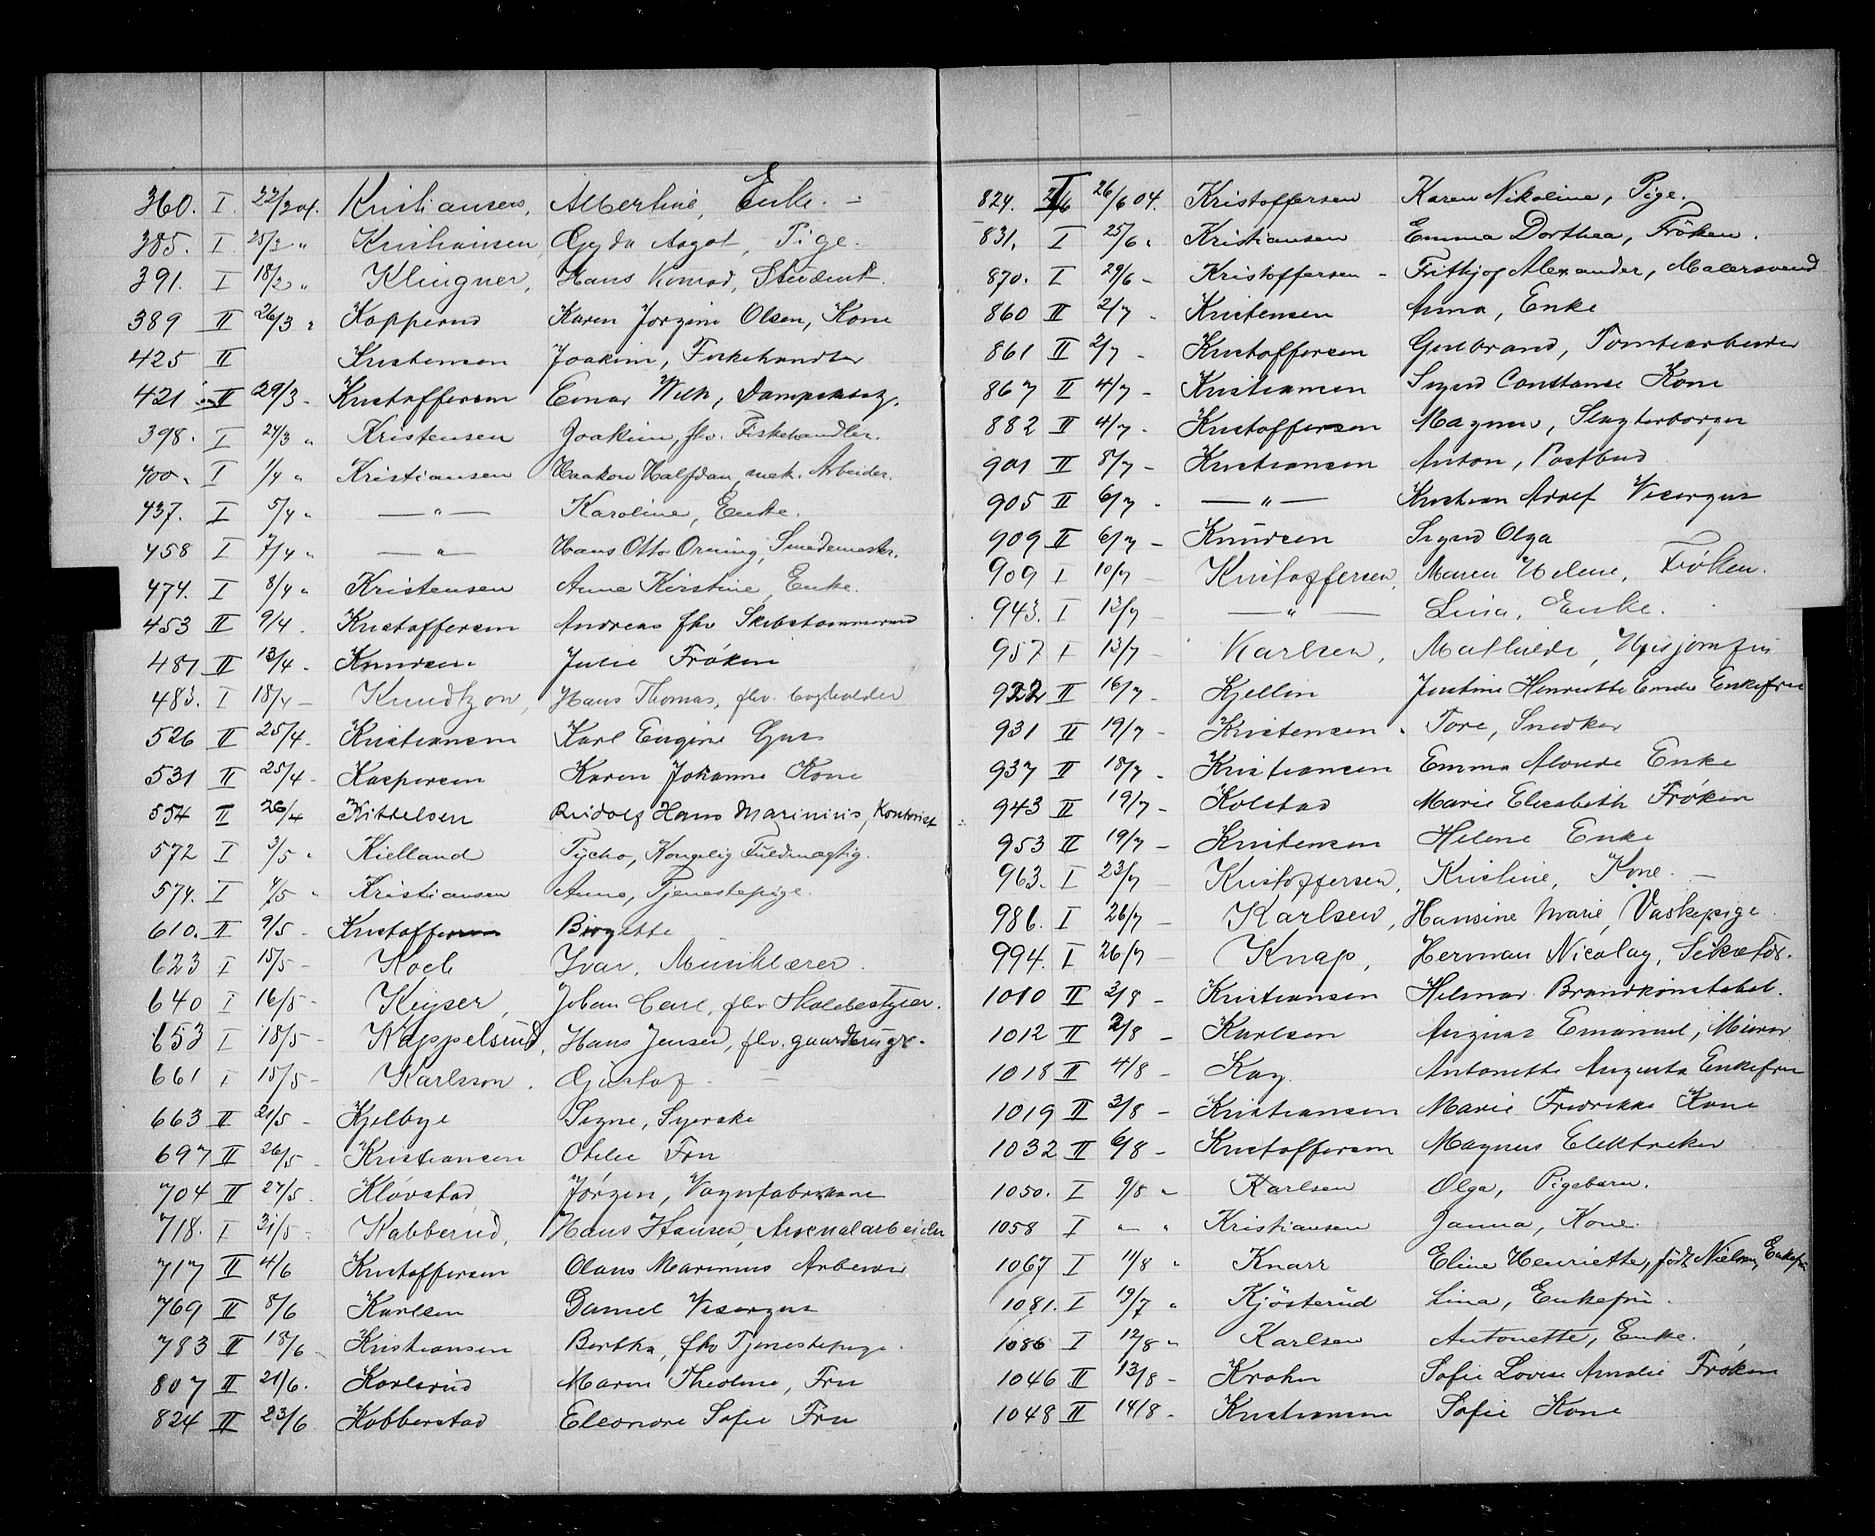 360. I. 22/3 04. Kristiansen, Albertine, Enke. -
385. I. 25/3 " Kristiansen, Gyda Aagot, Pige.
391. I 18/3 " Klingner, Hans Konrad, Student.
389 II 26/3 " Kopperud Karen Jorgine Olsen, Kone
425 II Kristensen Joakim, Fiskehandler
421 II 29/3 - Kristoffersen Einar Wilh,
398. I 24/3 " Kristensen Joakim, fhv. Fiskehandler.
400. I 1/4 " Kristiansen Haakon Halfdan, mek. Arbeider.
437. I 5/4 " —"— Karoline, Enke.
458 I 7/4 " —"— Hans Otto Orning, Smedemester.
474. I 8/4 " Kristensen Anne Kirstine, Enke.
453 II 9/4 . Kristoffersen Andreas fhv Skibstømmermd
481 II 13/4 . Knudsen Julie Frøken
483. I 18/4 — Knudtzon, Hans Thomas, fhv. bogholder
526 II 25/4 - Kristiansen Karl Eugine Gut
531 II 25/4 - Kaspersen Karen Johanne Kone
554 II 26/4 Kittelsen Rudolf Hans Marinius, Kontorist
572 I 3/5 " Kielland Tycho, Kongelig Fuldmægtig.
574. I 4/5 " Kristiansen Anne, Tjenestepige.
610. II 9/5 - Kristoffersen Birgitte
623 I 15/5 - Koch Ivar, Musiklærer.
640 I 16/5 - Keyser, Johan Carl, fhv Skolebestyrer.
653 I 18/5 - Kappelsrud, Hans Jensen, fhv. gaardbruger.
661 I 15/5 - Karlsson. Gustaf. —
663 II 21/5 - Kjelbye Signe, Syerske
697 II 26/5 - Kristiansen Otilie Fru
704 II 27/5 . Kløvstad Jörgen, Vognfabrikant
718. I 31/5 - Kabberud, Hans Hansen, Arsenalarbeider
717 II 4/6 Kristoffersen Olaus Marinius Arbeider
769 II 8/6 Karlsen Daniel Visergut
783 II 18/6 - Kristiansen Bertha, fhv Tjenestepige.
807 II 21/6. Karlsrud Maren Theoline, Fru
824 II 23/6 Kobberstad Eleonore Sofie Fru
824. I 26/6 04. Kristoffersen Karen Nikoline, Pige.
831. I 25/6 " Kristiansen Emma Dorthea, Fröken.
870. I 29/6 - Kristoffersen - Frithjof Alexander, Malersvend
860 II 2/7 - Kristensen Anna, Enke
861 II 2/7 - Kristoffersen Gulbrand, Tomtearbeider
867 II 4/7 - Kristiansen Sigrid Constanse Kone
882 II 4/7 - Kristoffersen Magnus, Slagterborger
901 II 8/7 - Kristiansen Anton, Postbud
905 II 6/7 . —"— Kristian Adolf Visergut
909 II 6/7 - Knudsen Sigrid Olga
909 I 10/7 — Kristoffersen, Maren Helene, Frøken.
943. I 13/7 —"— Lina, Enke.
957 I 13/7 — Karlsen, Mathilde, Husjomfru
922 II 16/7 - Kjellin Justine Henriette Enkefru
931 II 19/7 - Kristensen . Tore, Snedker
937 II 18/7 - Kristiansen Emma Alvilde Enke
943 II 19/7 - Kolstad Marie Elisabeth Frøken
953 II 19/7 - Kristensen Helene Enke
963. I 23/7 — Kristoffersen, Kristine, Kone. —
986. I 26/7 — Karlsen, Hansine Marie, Vaskepige.
994. I 26/7 — Knap, Herman Nicolay, Sekretær.
1010 II 3/8 - Kristiansen Hilmar Brandkonstabel.
1012 II 2/8 - Karlsen August Emanuel, Murer
1018 II 4/8 - Kay Antonette Augusta Enkefru
1019 II 3/8 - Kristiansen Marie Fredrikke Kone
1032 II 6/8 - Kristoffersen Magnus Elektriker
1050. I 9/8 " Karlsen Olga, Pigebarn.
1058 I " " Kristiansen Janna, Kone.
1067 I 11/8 " Knarr Eline Henriette, född Nielsen, Enkefru
1081. I 19/7 " Kjösterud Lina, Enkefru.
1086 I 12/8 " Karlsen Antonette, Enke.
1046 II 13/8 - Krohn Sofie Lovise Amalie Frøken
1048 II 14/8 - Kristiansen Sofie Kone